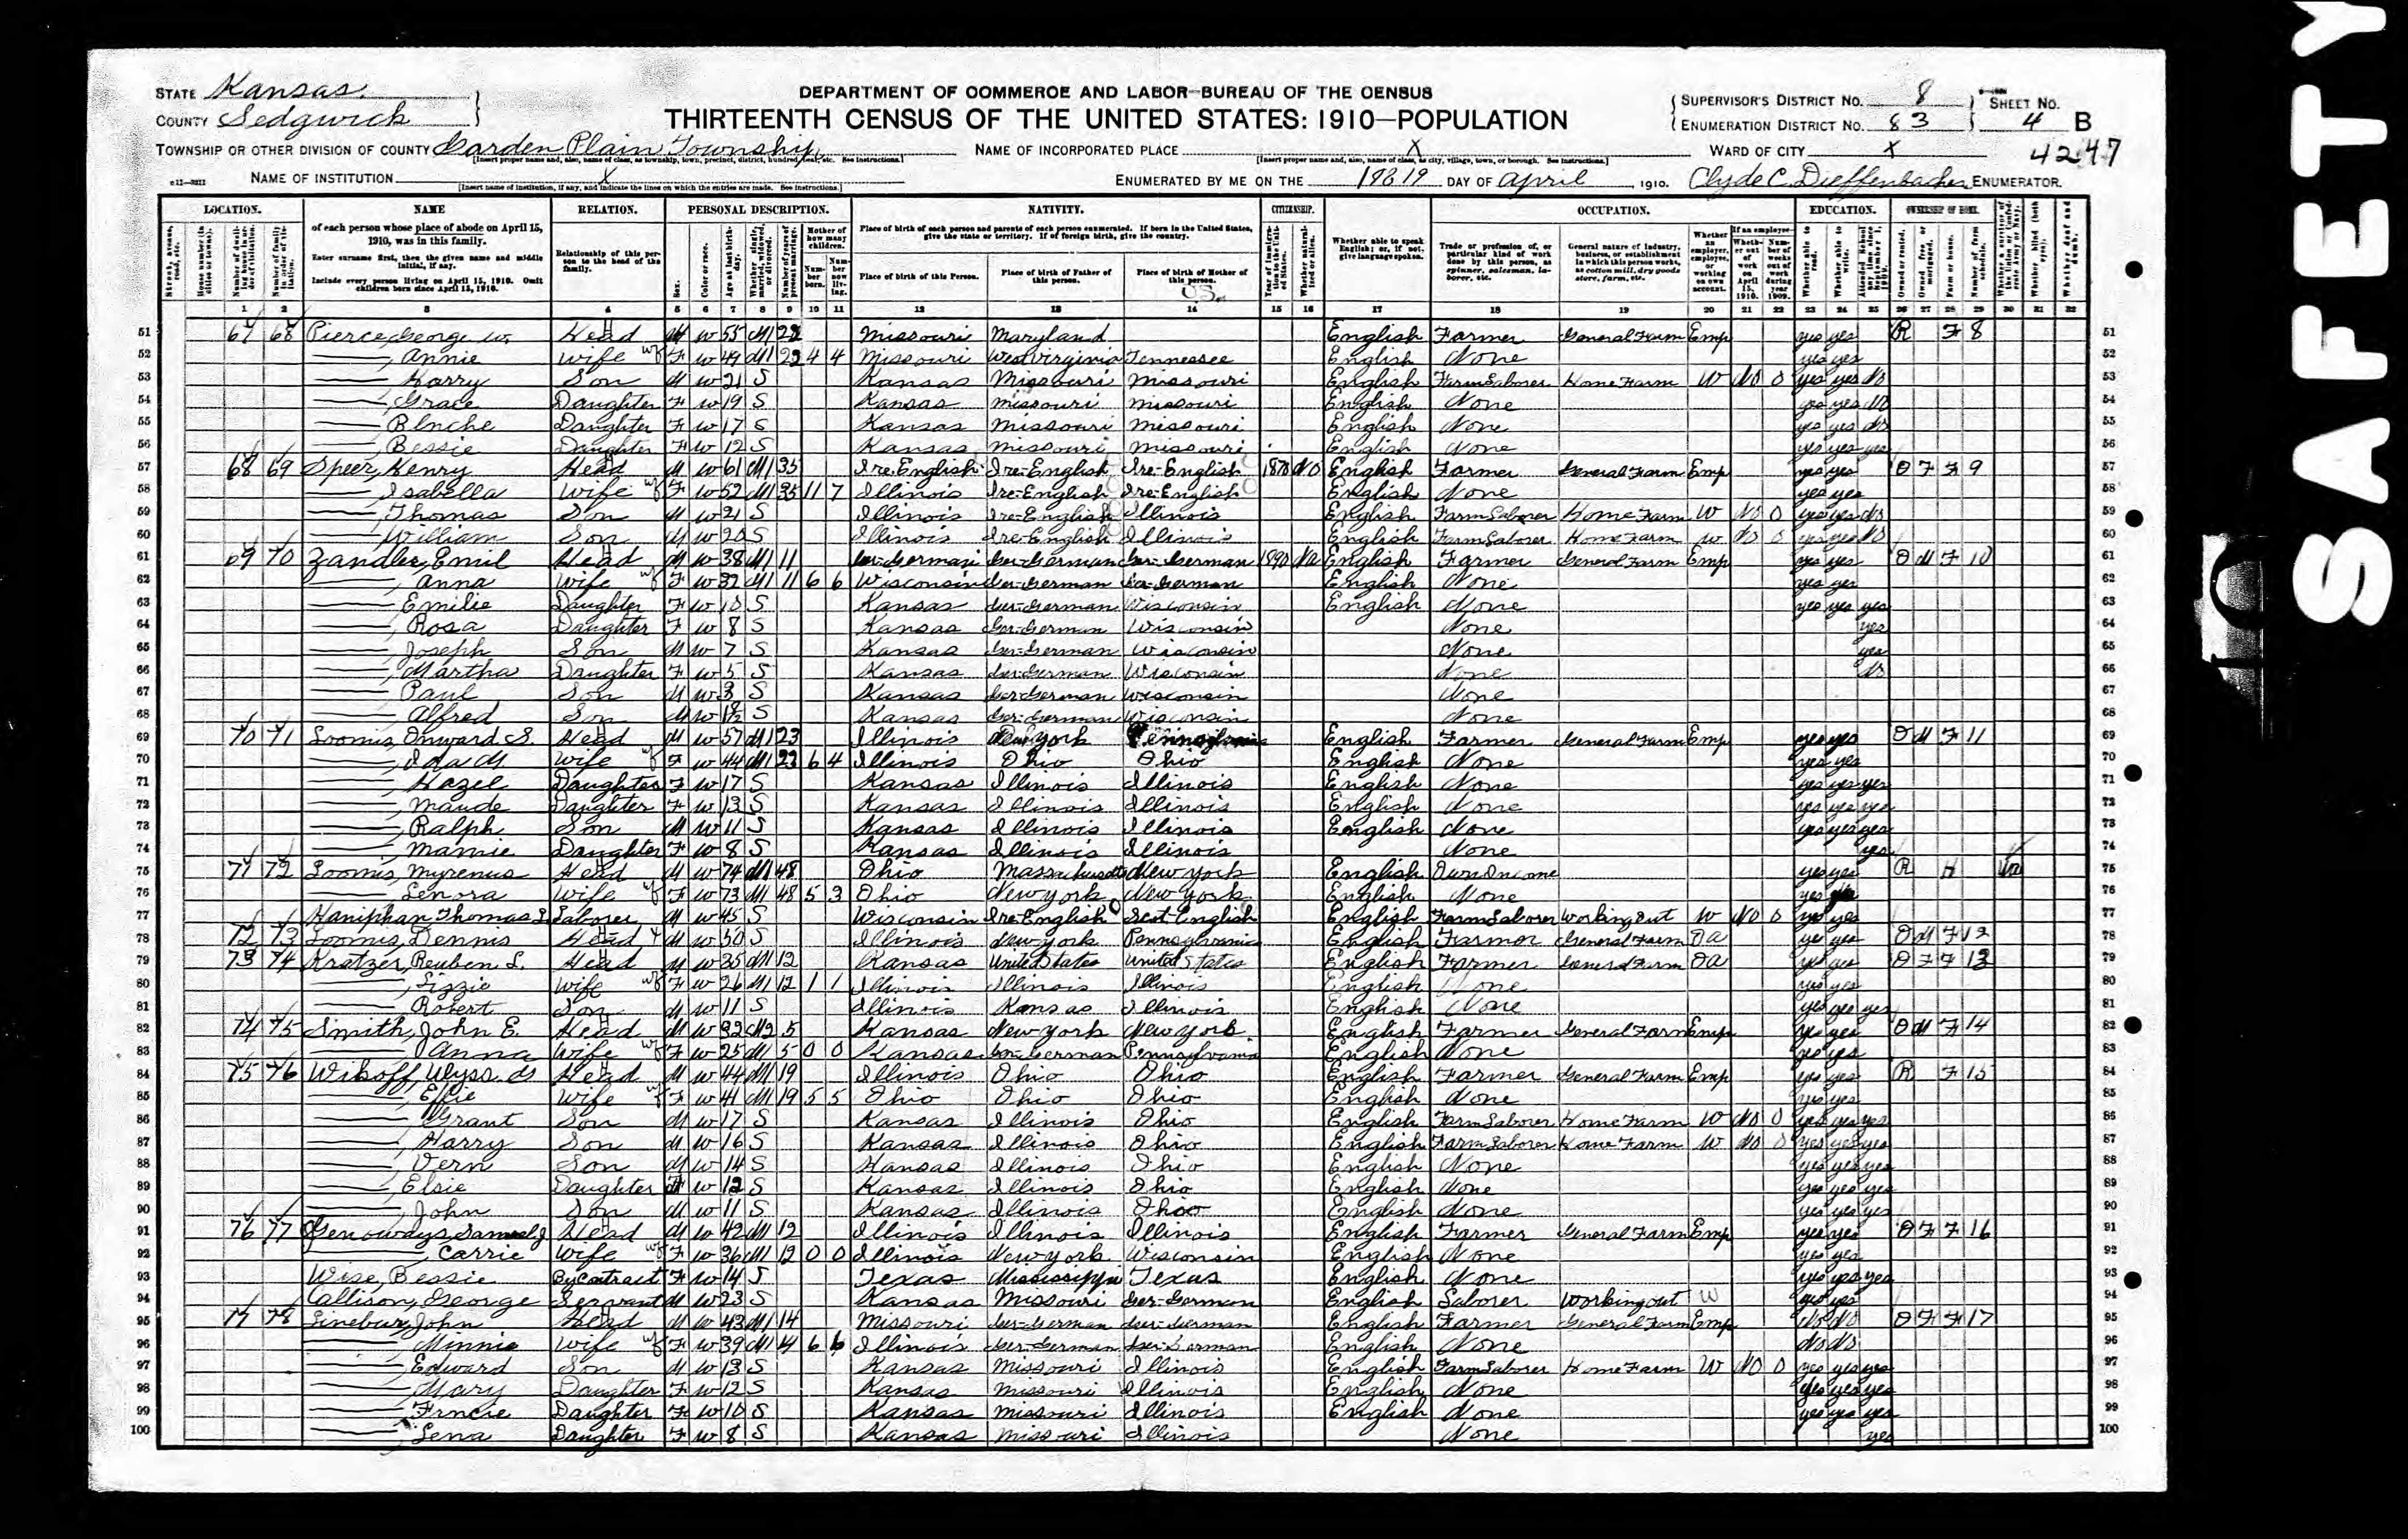 STATE Kansas
DEPARTMENT OF COMMERCE AND LABOR—BUREAU OF THE CENSUS
COUNTY Sedgwick
THIRTEENTH CENSUS OF THE UNITED STATES: 1910—POPULATION
SUPERVISOR'S DISTRICT NO. 8
ENUMERATION DISTRICT NO. 83
SHEET NO. 4 B
TOWNSHIP OR OTHER DIVISION OF COUNTY Garden Plain Township
NAME OF INCORPORATED PLACE X
WARD OF CITY X
4247
NAME OF INSTITUTION X
ENUMERATED BY ME ON THE DAY OF April, 1910. Clyde C. Dieffenbacher, ENUMERATOR.
LOCATION. NAME RELATION. PERSONAL DESCRIPTION. NATIVITY. CITIZENSHIP. OCCUPATION. EDUCATION. OWNERSHIP OF HOME.
of each person whose place of abode on April 15, 1910, was in this family.
Enter surname first, then the given name and middle initial, if any.
Include every person living on April 15, 1910. Omit children born since April 15, 1910.
Relationship of this person to the head of the family.
Place of birth of each person and parents of each person enumerated. If born in the United States, give the state or territory. If of foreign birth, give the country.
Place of birth of this Person. Place of birth of Father of this person. Place of birth of Mother of this person.
Whether able to speak English; or, if not, give language spoken.
1 2 3 4 5 6 7 8 9 10 11 12 13 14 15 16 17 18 19 20 21 22 23 24 25 26 27 28 29 30 31 32
51 67 68 Pierce, George W. Head M W 55 M1 Missouri Maryland English Farmer General Farm Emp yes yes R F 8 51
52 Annie Wife F W 49 M1 4 4 Missouri West Virginia Tennessee English None yes yes 52
53 Harry Son M W 21 S Kansas Missouri Missouri English Farm Laborer Home Farm W No 0 yes yes No 53
54 Grace Daughter F W 19 S Kansas Missouri Missouri English None yes yes No 54
55 Blnche Daughter F W 17 S Kansas Missouri Missouri English None yes yes No 55
56 Bessie Daughter F W 12 S Kansas Missouri Missouri English None yes yes yes 56
57 68 69 Speer, Henry Head M W 61 M1 35 Ire-English Ire-English Ire-English English Farmer General Farm Emp yes yes O F F 9 57
58 Isabella Wife F W 52 M1 35 11 7 Illinois Ire-English Ire-English English None yes yes 58
59 Thomas Son M W 21 S Illinois Ire-English Illinois English Farm Laborer Home Farm W No 0 yes yes No 59
60 William Son M W 20 S Illinois Ire-English Illinois English Farm Laborer Home Farm W No 0 yes yes No 60
61 69 70 Zandler, Emil Head M W 38 M1 11 Ger-German Ger-German Ger-German 1890 Na English Farmer General Farm Emp yes yes O M F 10 61
62 Anna Wife F W 32 M1 11 6 6 Wisconsin Ger-German Ger-German English None yes yes 62
63 Emilie Daughter F W 10 S Kansas Ger-German Wisconsin English None yes yes yes 63
64 Rosa Daughter F W 8 S Kansas Ger-German Wisconsin None yes 64
65 Joseph Son M W 7 S Kansas Ger-German Wisconsin None yes 65
66 Martha Daughter F W 5 S Kansas Ger-German Wisconsin None No 66
67 Paul Son M W 3 S Kansas Ger-German Wisconsin None 67
68 Alfred Son M W S Kansas Ger-German Wisconsin None 68
69 70 71 Loomis, Onward S. Head M W 57 M1 23 Illinois New York Pennsylvania English Farmer General Farm Emp yes yes O M F 11 69
70 Ida M Wife F W 44 M1 23 6 4 Illinois Ohio Ohio English None yes yes 70
71 Hazel Daughter F W 17 S Kansas Illinois Illinois English None yes yes yes 71
72 Maude Daughter F W 13 S Kansas Illinois Illinois English None yes yes yes 72
73 Ralph Son M W 11 S Kansas Illinois Illinois English None yes yes yes 73
74 Mamie Daughter F W 8 S Kansas Illinois Illinois None yes 74
75 71 72 Loomis, Myrenus Head M W 74 M1 48 Ohio Massachusetts New York English Own Income yes yes R H 75
76 Lenora Wife F W 73 M1 48 5 3 Ohio New York New York English None yes 76
77 Haniphan Thomas L Laborer M W 45 S Wisconsin Ire-English Scot English English Farm Laborer Working Out W No 0 yes yes 77
78 72 73 Loomis, Dennis Head M W 50 S Illinois New York Pennsylvania English Farmor General Farm Oa yes yes O M F 12 78
79 73 74 Kratzer, Reuben L. Head M W 35 M1 12 Kansas United States United States English Farmer General Farm Oa yes yes O F F 13 79
80 Lizzie Wife F W 26 M1 12 1 1 Illinois Illinois Illinois English None yes yes 80
81 Robert Son M W 11 S Illinois Kansas Illinois English None yes yes yes 81
82 74 75 Smith, John E. Head M W 32 M2 5 Kansas New York New York English Farmer General Farm Emp yes yes O M F 14 82
83 Anna Wife F W 25 M1 5 0 0 Kansas Ger-German Pennsylvania English None yes yes 83
84 75 76 Wikoff, Ulyss. M Head M W 44 M1 19 Illinois Ohio Ohio English Farmer General Farm Emp yes yes R F 15 84
85 Effie Wife F W 41 M1 19 5 5 Ohio Ohio Ohio English None yes yes 85
86 Grant Son M W 17 S Kansas Illinois Ohio English Farm Laborer Home Farm W No 0 yes yes yes 86
87 Harry Son M W 16 S Kansas Illinois Ohio English Farm Laborer Home Farm W No 0 yes yes yes 87
88 Vern Son M W 14 S Kansas Illinois Ohio English None yes yes yes 88
89 Elsie Daughter F W 12 S Kansas Illinois Ohio English None yes yes yes 89
90 John Son M W 11 S Kansas Illinois Ohio English None yes yes yes 90
91 76 77 Genoways, Samuel J Head M W 42 M1 12 Illinois Illinois Illinois English Farmer General Farm Emp yes yes O F F 16 91
92 Carrie Wife F W 36 M1 12 0 0 Illinois New York Wisconsin English None yes yes 92
93 Wise, Bessie By Contract F W 14 S Texas Mississippi Texas English None yes yes yes 93
94 Callison, George Servant M W 23 S Kansas Missouri Ger-German English Laborer Working out W yes yes 94
95 77 78 Linebur, John Head M W 43 M1 14 Missouri Ger-German Ger-German English Farmer General Farm Emp No No O F F 17 95
96 Minnie Wife F W 39 M1 14 6 6 Illinois Ger-German Ger-German English None No No 96
97 Edward Son M W 13 S Kansas Missouri Illinois English Farm Laborer Home Farm W No 0 yes yes yes 97
98 Mary Daughter F W 12 S Kansas Missouri Illinois English None yes yes yes 98
99 Frncie Daughter F W 10 S Kansas Missouri Illinois English None yes yes yes 99
100 Lena Daughter F W 8 S Kansas Missouri Illinois None yes 100
SAFETY